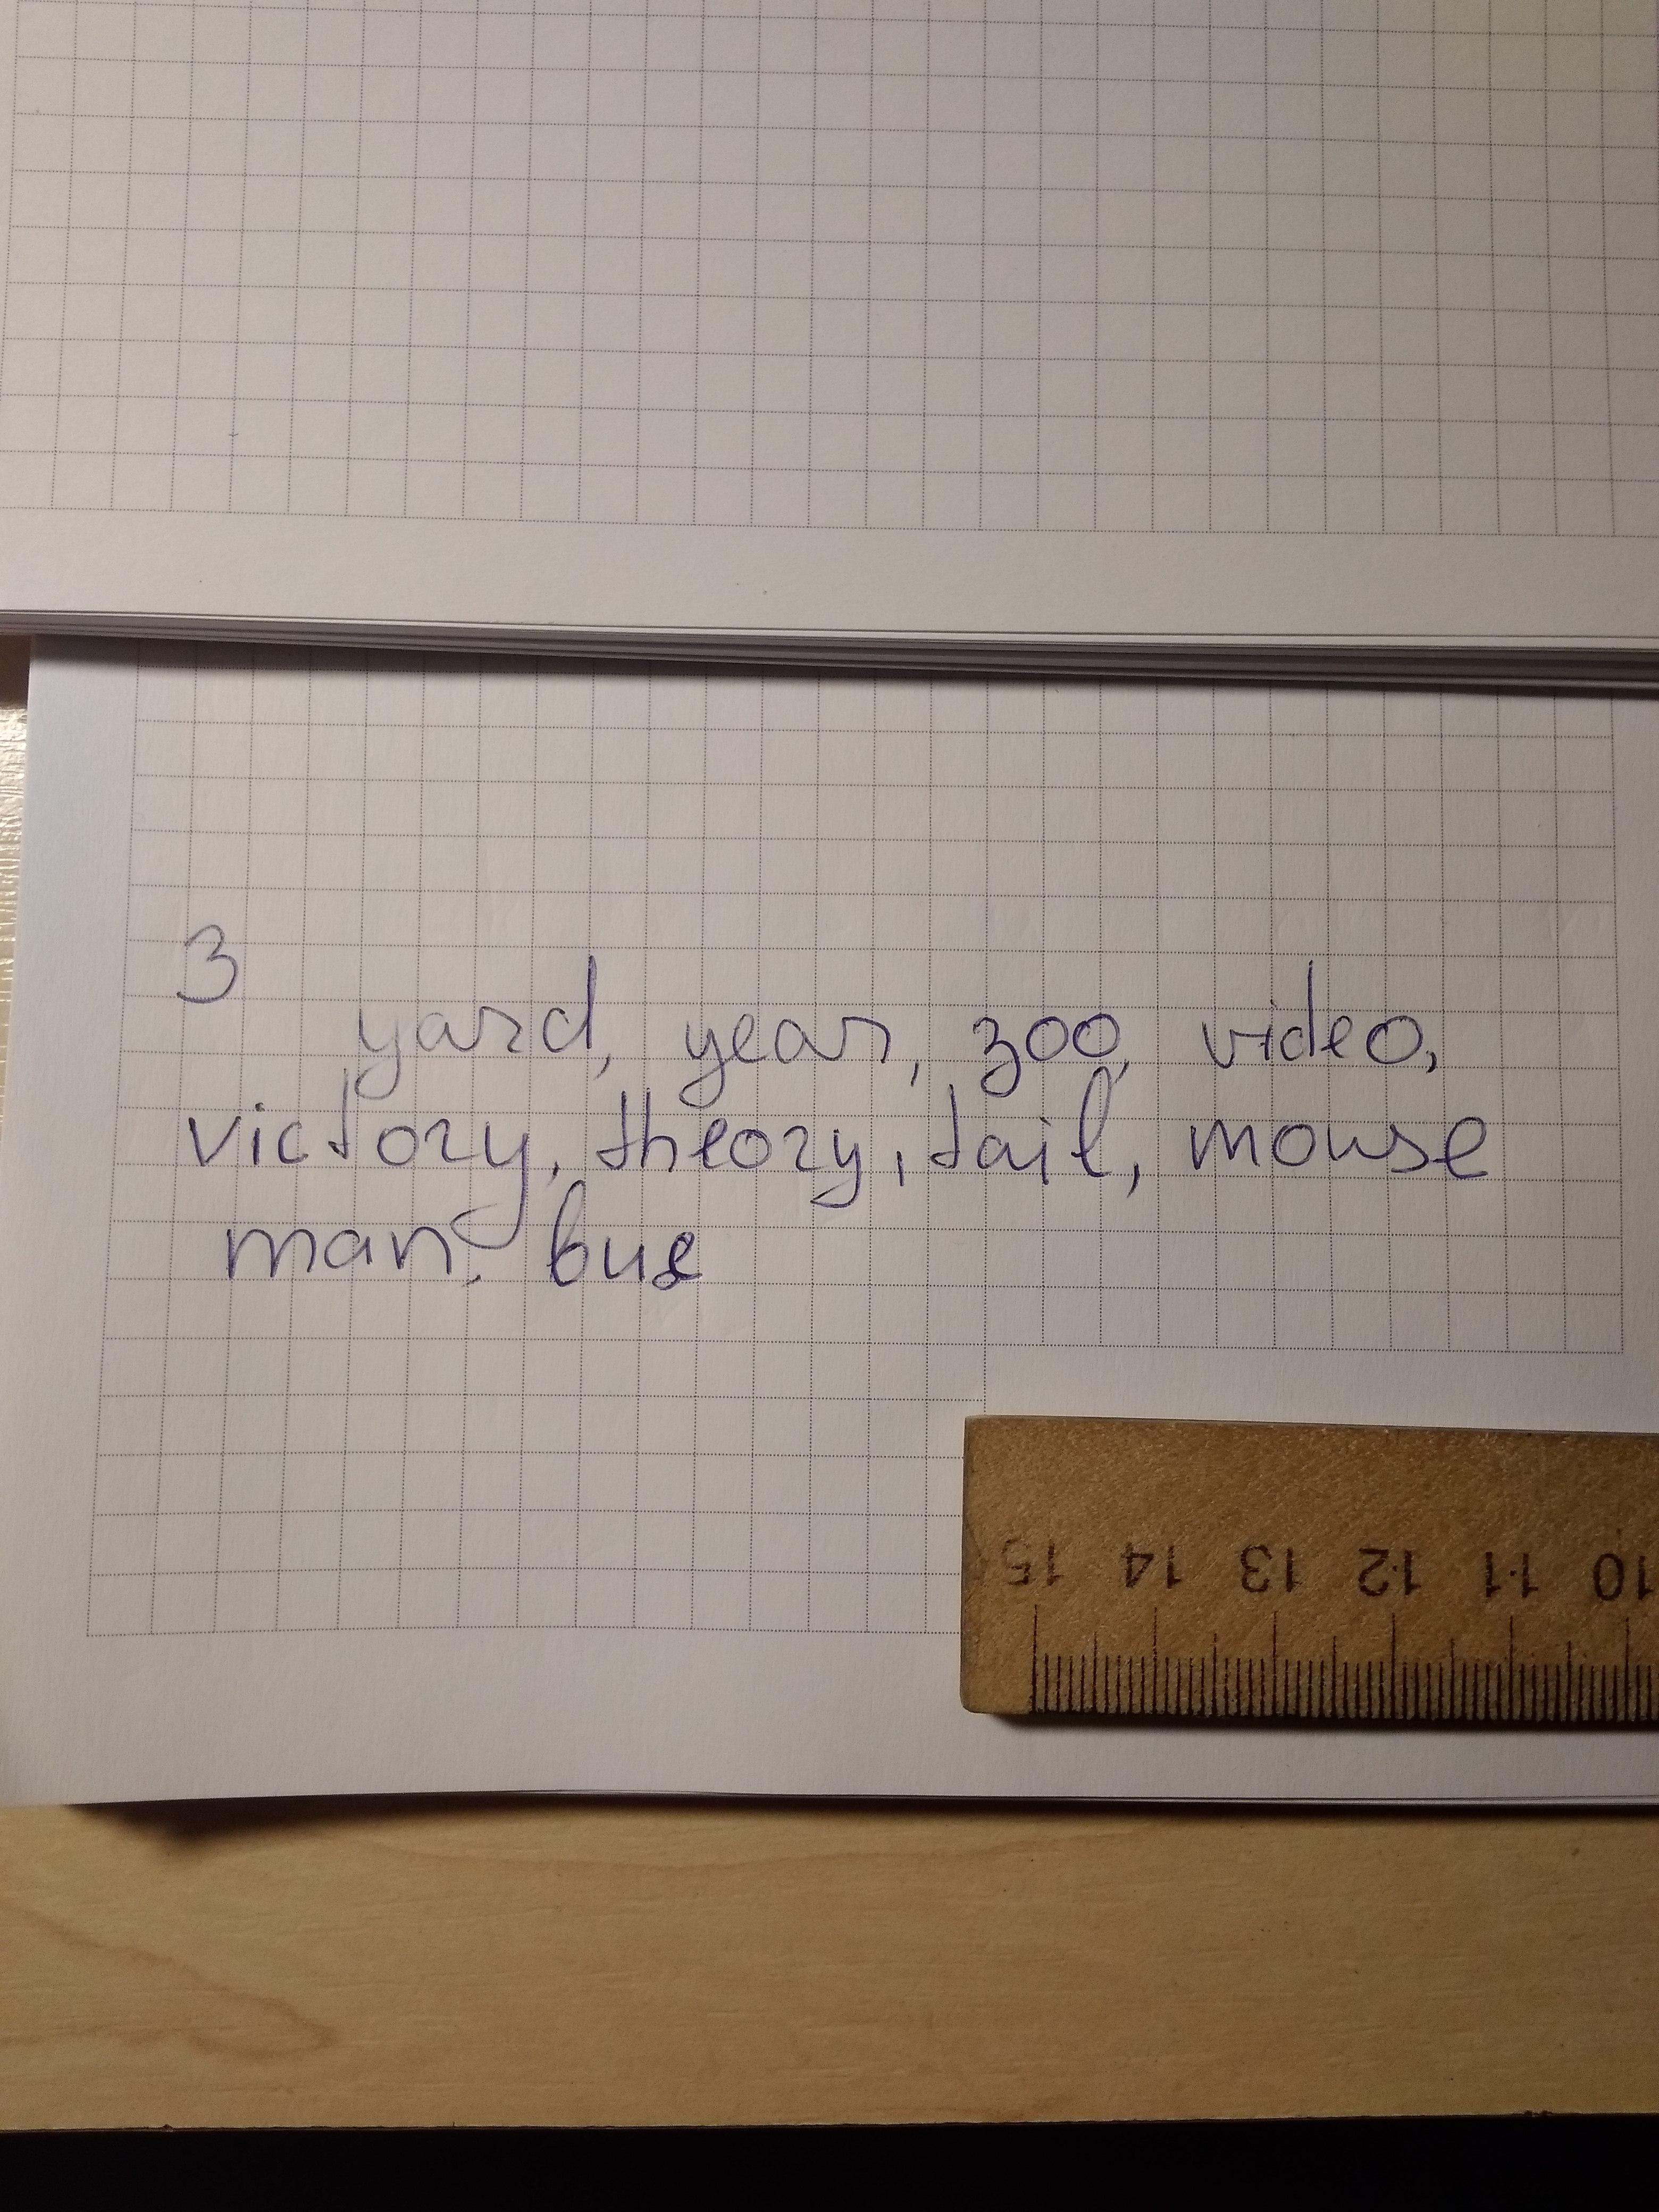 3
yard, year, zoo, video,
victory, theory, tail, mouse
man, bus
15 14 13 12 11 10